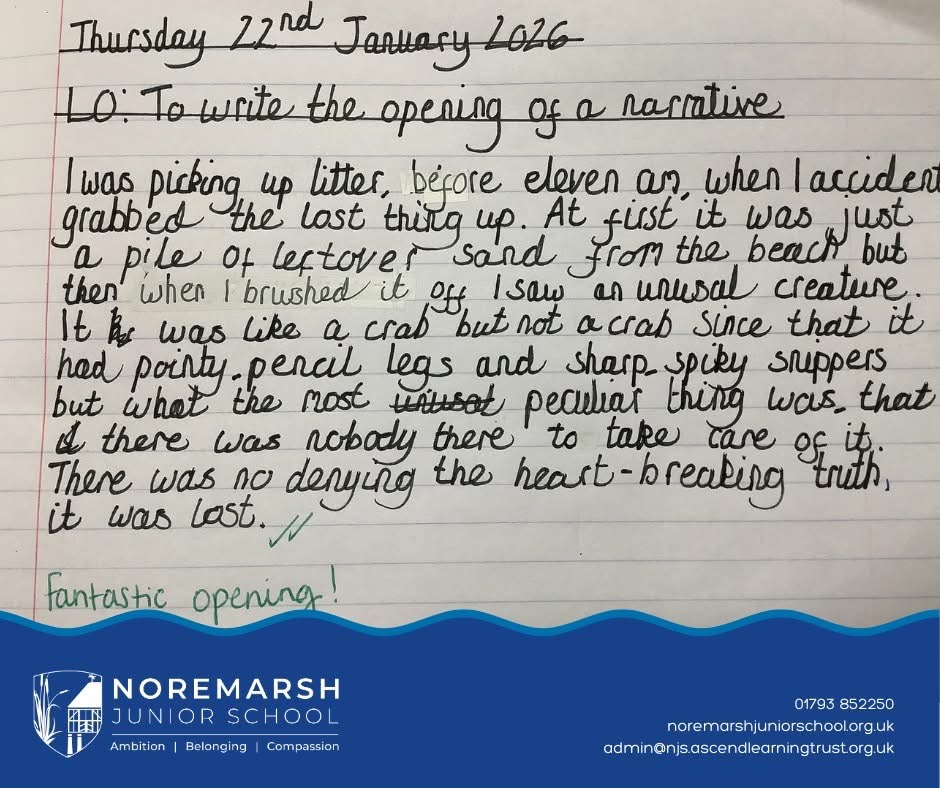 Thursday 22nd January 2026
LO: To write the opening of a narrative
I was picking up litter, before eleven am, when I accident
grabbed the last thing up. At first, it was just
a pile of leftover sand from the beach but
then when I brushed it off I saw an unusual creature.
It was like a crab but not a crab since that it
had pointy pencil legs and sharp spiky snippers
but what the most unusat peculiar thing was that
there was nobody there to take care of it.
There was no denying the heart-breaking truth,
it was lost.
fantastic opening!
NOREMARSH
JUNIOR SCHOOL
Ambition | Belonging | Compassion
01793 852250
noremarshjuniorschool.org.uk
admin@njs.ascendlearningtrust.org.uk